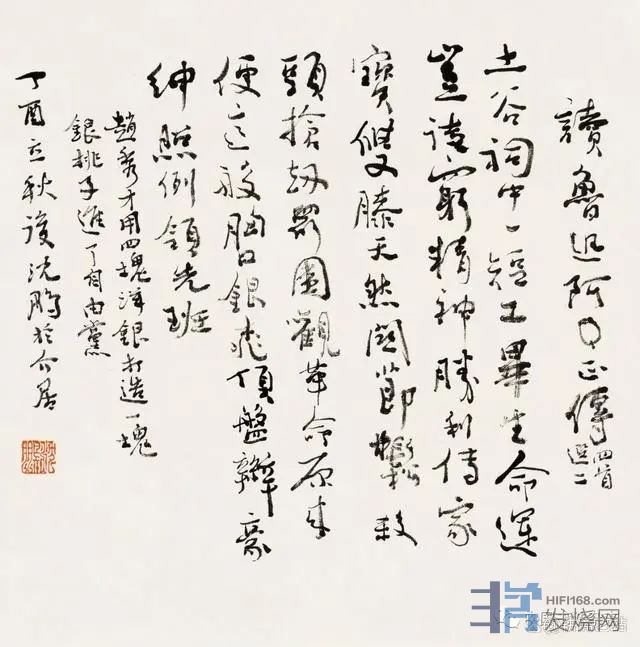 讀魯迅阿Q正傳 四首選二
土谷祠中一短工畢生命運
豈諉窮精神勝利傳家
寶雙膝天然關節鬆 殺
頭搶劫眾圍觀革命原來
便這般胸口銀飛頂盤辮豪
紳照例領先班
趙秀才用四塊洋銀打造一塊
銀桃子進了自由黨
丁酉立秋後沈鵬於介居
HIFI168.com
发烧网